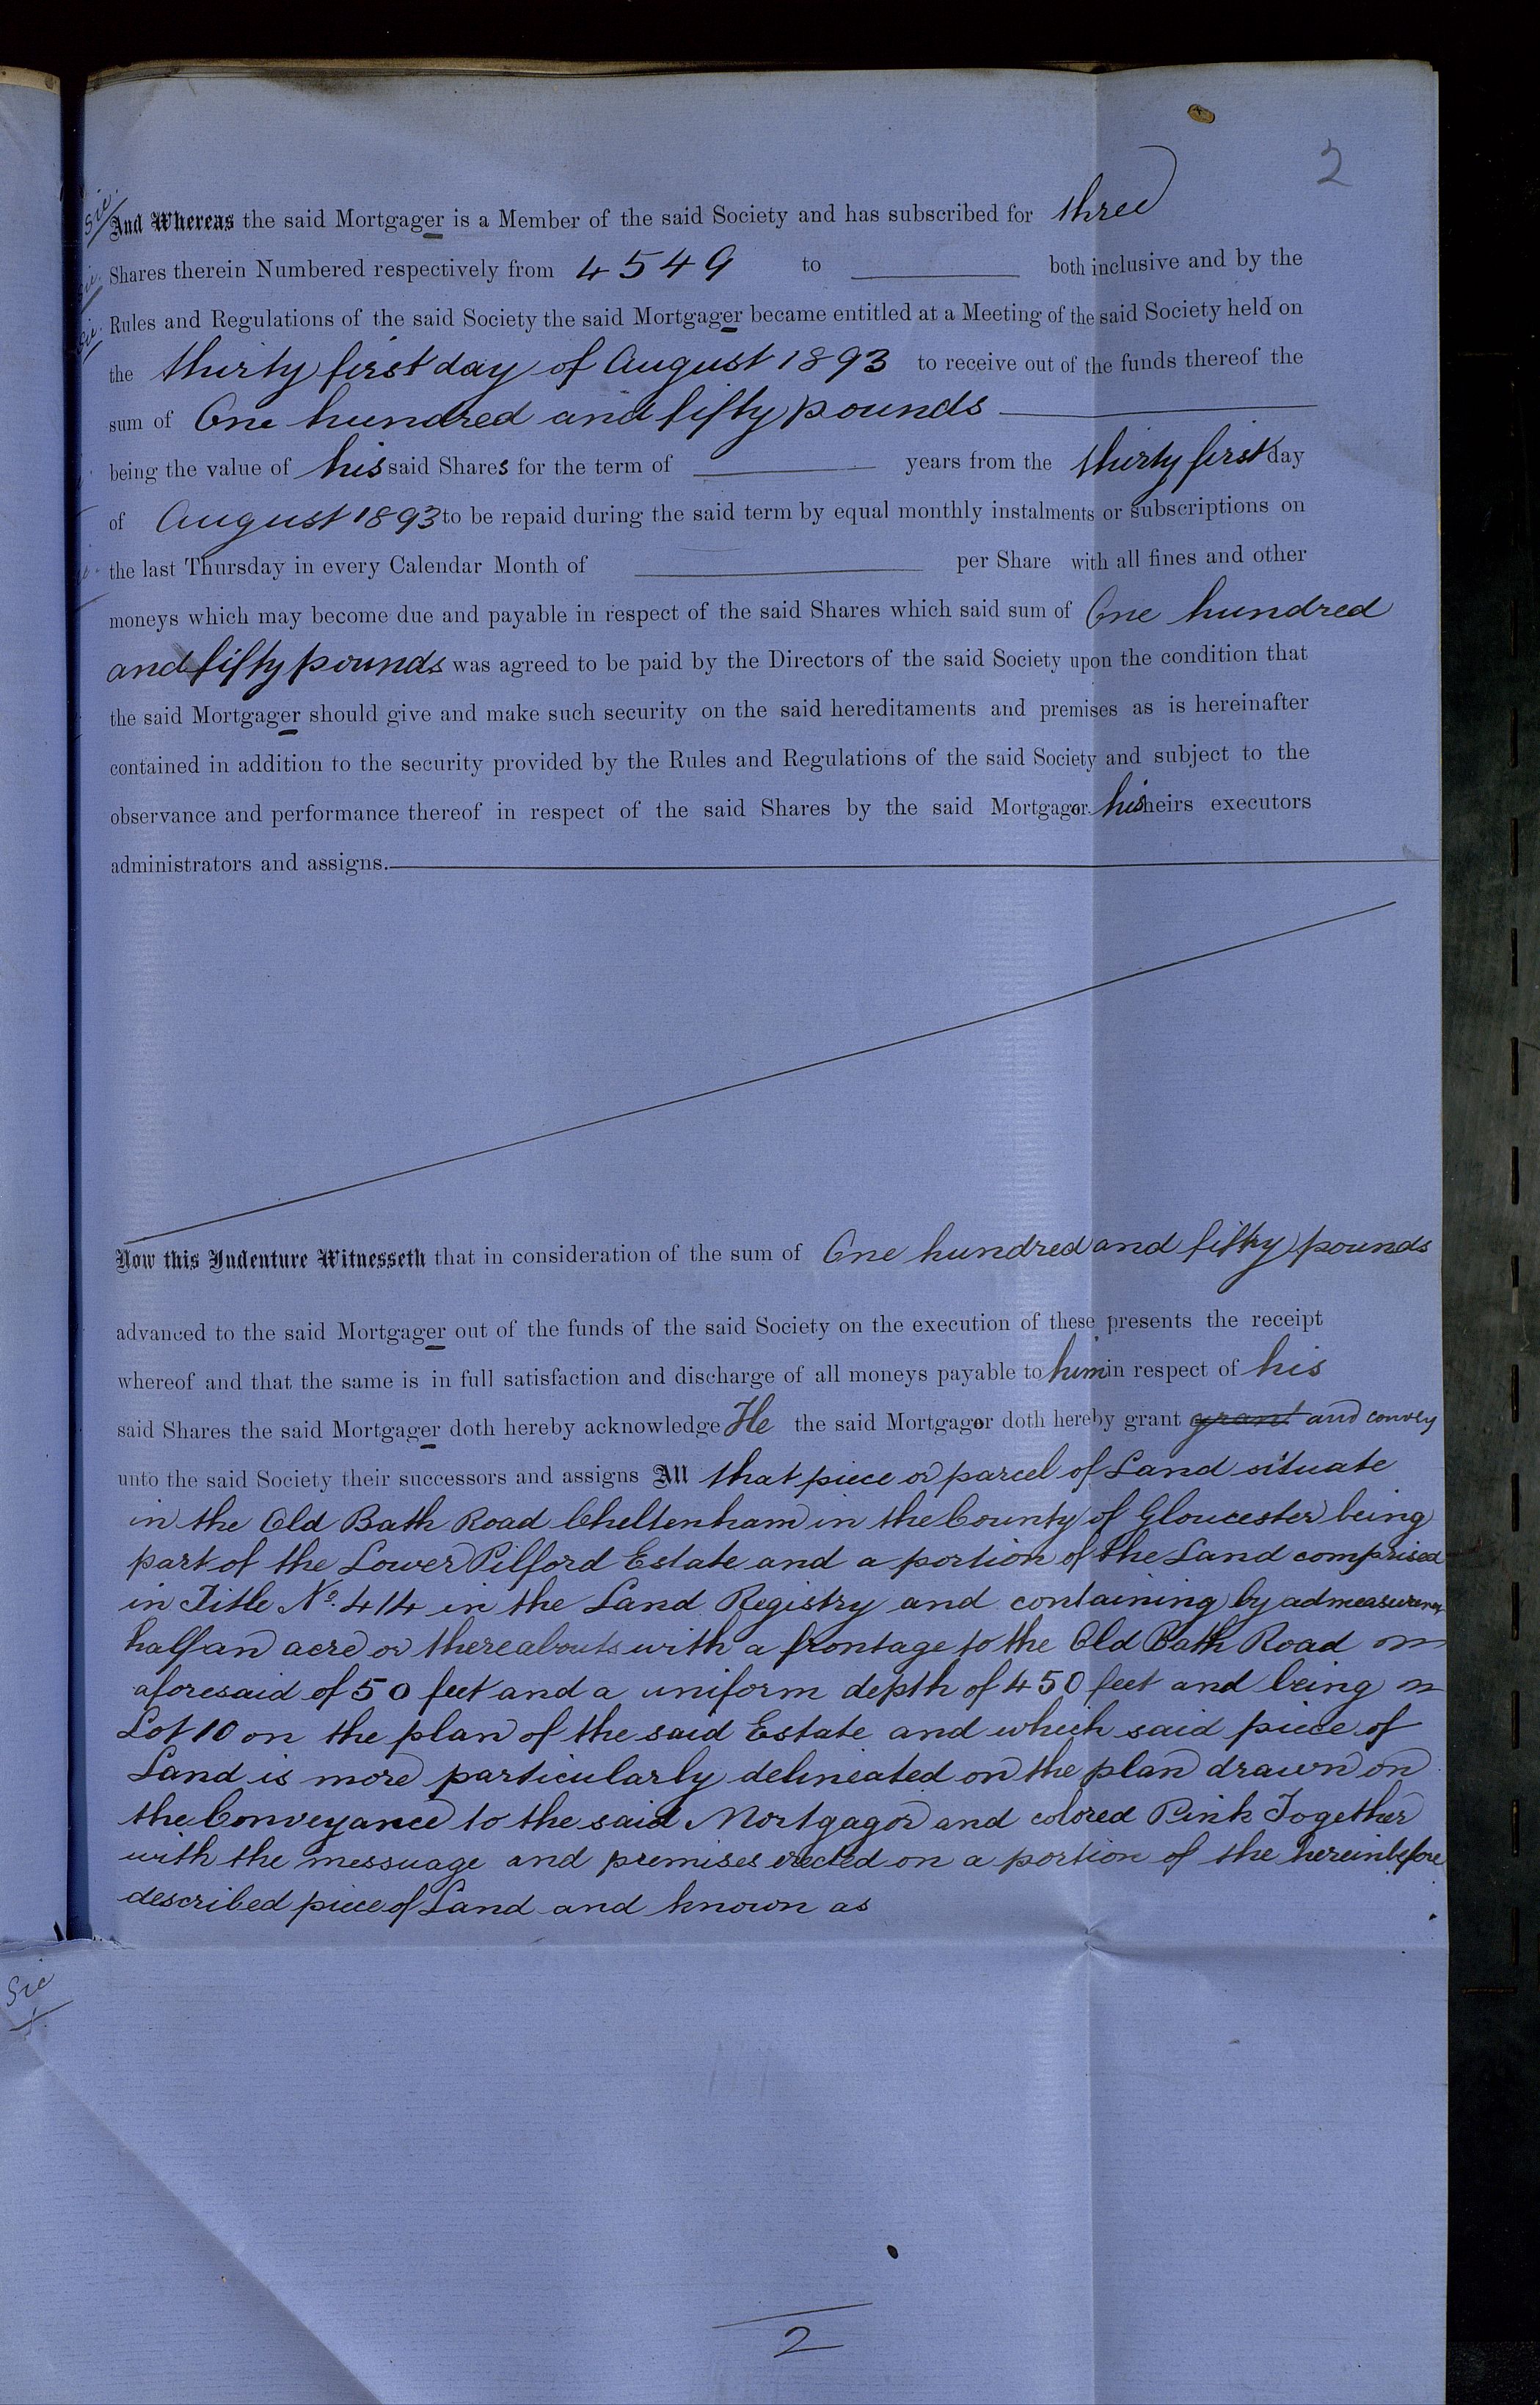 2
Sic And Whereas the said Mortgager is a Member of the said Society and has subscribed for three
Sic. Shares therein Numbered respectively from 4549 to both inclusive and by the
Sic. Rules and Regulations of the said Society the said Mortgager became entitled at a Meeting of the said Society held on
the thirty first day of August 1893 to receive out of the funds thereof the
sum of One hundred and fifty pounds
being the value of his said Shares for the term of years from the thirty first day
of August 1893 to be repaid during the said term by equal monthly instalments or subscriptions on
the last Thursday in every Calendar Month of per Share with all fines and other
moneys which may become due and payable in respect of the said Shares which said sum of One hundred
and fifty pounds was agreed to be paid by the Directors of the said Society upon the condition that
the said Mortgager should give and make such security on the said hereditaments and premises as is hereinafter
contained in addition to the security provided by the Rules and Regulations of the said Society and subject to the
observance and performance thereof in respect of the said Shares by the said Mortgagor his heirs executors
administrators and assigns.
Now this Indenture Witnesseth that in consideration of the sum of One hundred and fifty pounds
advanced to the said Mortgager out of the funds of the said Society on the execution of these presents the receipt
whereof and that the same is in full satisfaction and discharge of all moneys payable to him in respect of his
said Shares the said Mortgager doth hereby acknowledge He the said Mortgagor doth hereby grant grant and convey
unto the said Society their successors and assigns All that piece or parcel of Land situate
in the Old Bath Road Cheltenham in the County of Gloucester being
part of the Lower Pilford Estate and a portion of the Land comprised
in Title No. 414 in the Land Registry and containing by
half an acre or thereabouts with a frontage to the Old Bath Road
aforesaid of 50 feet and a uniform depth of 450 feet and being
Lot 10 on the plan of the said Estate and which said piece of
Land is more particularly delineated on the plan drawn on
the Conveyance to the said Mortgagor and colored Pink Together
with the messuage and premises erected on a portion of the hereinbefore
described piece of Land and known as
Sic
2